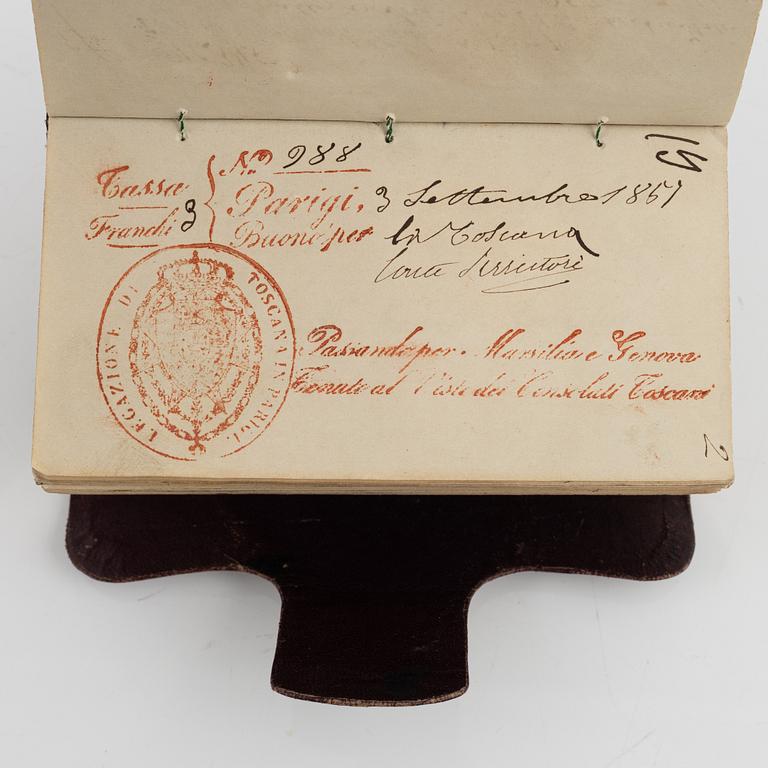 15
Tassa
Franchi 3
No 988
Parigi, 3 Settembre 1857
Buono per la Toscana
Conte
LEGAZIONE DI TOSCANA IN PARIGI
Passando per Marsilia e Genova
Tenute al Visto dei Consolati Toscani
2